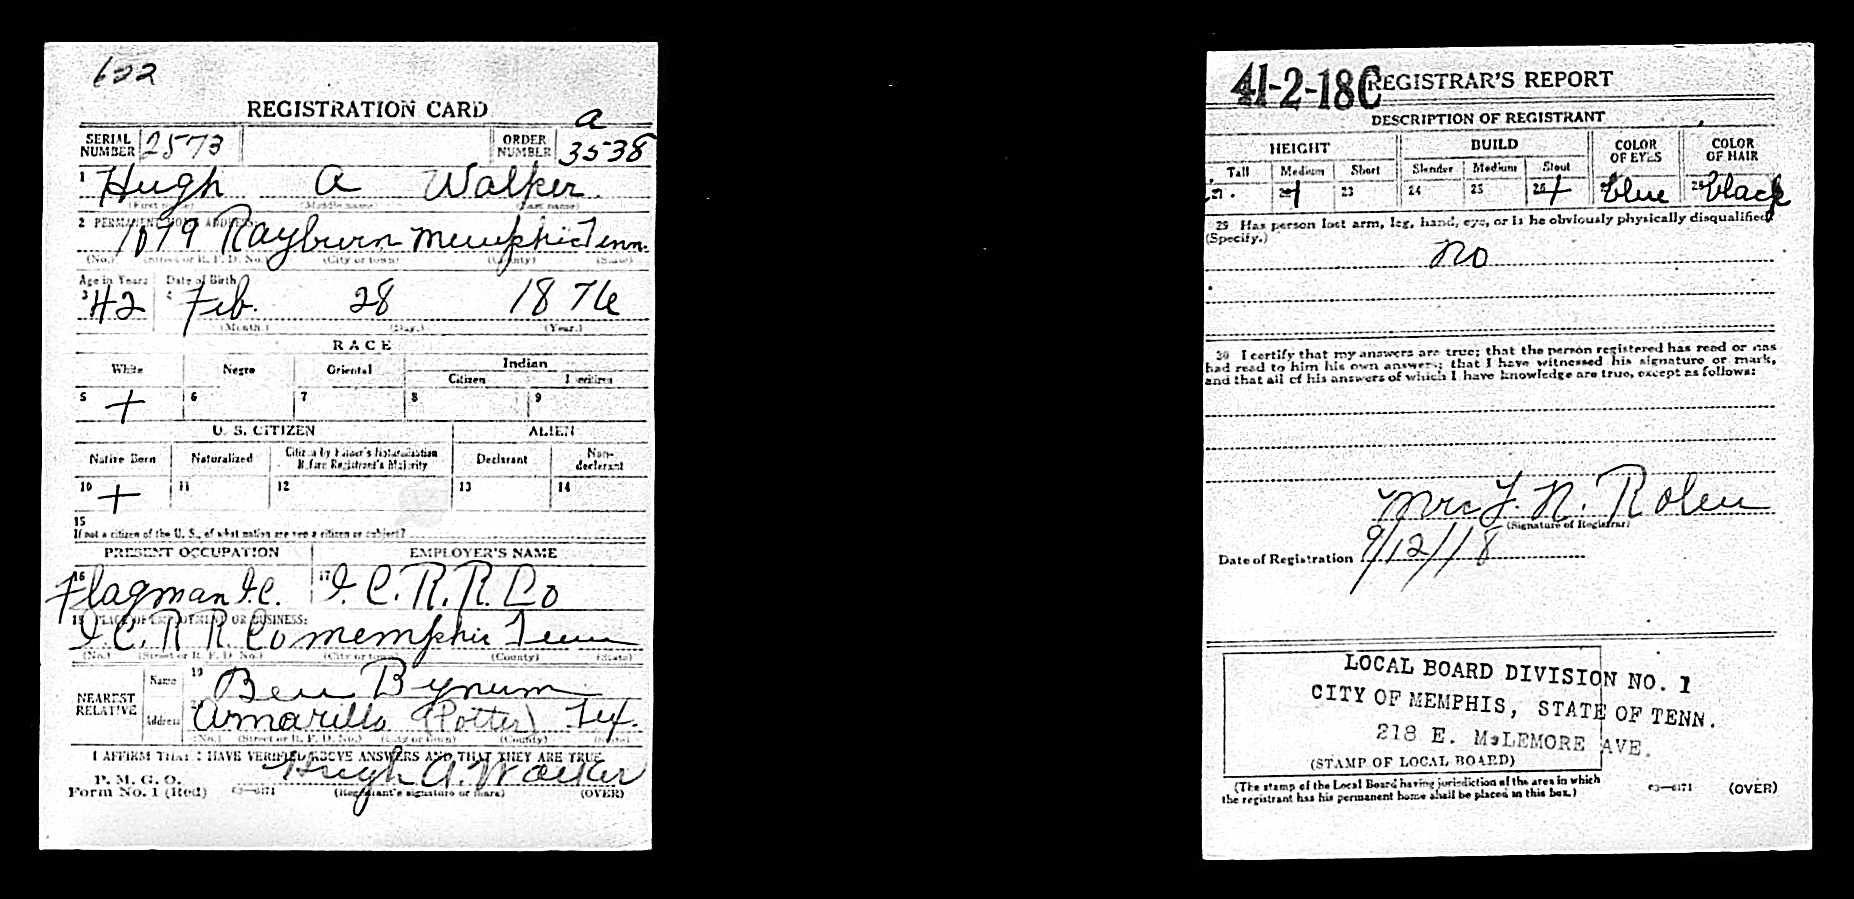 622
REGISTRATION CARD
SERIAL NUMBER 2573 ORDER NUMBER a 3538
1 Hugh a Walker
(First name) (Middle name) (Last name)
2 PERMANENT HOME ADDRESS:
1079 Rayburn Memphis Tenn.
(No.) (Street or R. F. D. No.) (City or town) (County) (State)
Age in Years Date of Birth
3 42 4 Feb. 28 1876
(Month.) (Day.) (Year.)
RACE
White Negro Oriental Indian
Citizen Noncitizen
5 + 6 7 8 9
U. S. CITIZEN ALIEN
Native Born Naturalized Citizen by Father's Naturalization Before Registrant's Majority Declarant Non-declarant
10 + 11 12 13 14
15
If not a citizen of the U. S., of what nation are you a citizen or subject?
PRESENT OCCUPATION EMPLOYER'S NAME
16 Flagman I.C. 17 I. C. R. R. Co
18 PLACE OF EMPLOYMENT OR BUSINESS:
I. C. R R. Co Memphis Tenn
(No.) (Street or R. F. D. No.) (City or town) (County) (State)
NEAREST RELATIVE
Name 19 Ben Bynum
Address Amarillo (Potter) Tex.
(No.) (Street or R. F. D. No.) (City or town) (County) (State)
I AFFIRM THAT I HAVE VERIFIED ABOVE ANSWERS AND THAT THEY ARE TRUE
P. M. G. O.
Form No. 1 (Red) 03—6171 Hugh A. Walker
(Registrant's signature or mark) (OVER)
41-2-18 C REGISTRAR'S REPORT
DESCRIPTION OF REGISTRANT
HEIGHT BUILD COLOR OF EYES COLOR OF HAIR
Tall Medium Short Slender Medium Stout
21 22 23 24 25 26 + 27 blue 28 black
29 Has person lost arm, leg, hand, eye, or is he obviously physically disqualified?
(Specify.)
no
30 I certify that my answers are true; that the person registered has read or has
had read to him his own answers; that I have witnessed his signature or mark,
and that all of his answers of which I have knowledge are true, except as follows:
Mrs J. N. Rolen
(Signature of Registrar)
Date of Registration 9/12/18
LOCAL BOARD DIVISION NO. 1
CITY OF MEMPHIS, STATE OF TENN.
218 E. McLEMORE AVE.
(STAMP OF LOCAL BOARD)
(The stamp of the Local Board having jurisdiction of the area in which
the registrant has his permanent home shall be placed in this box.)
03—6171 (OVER)